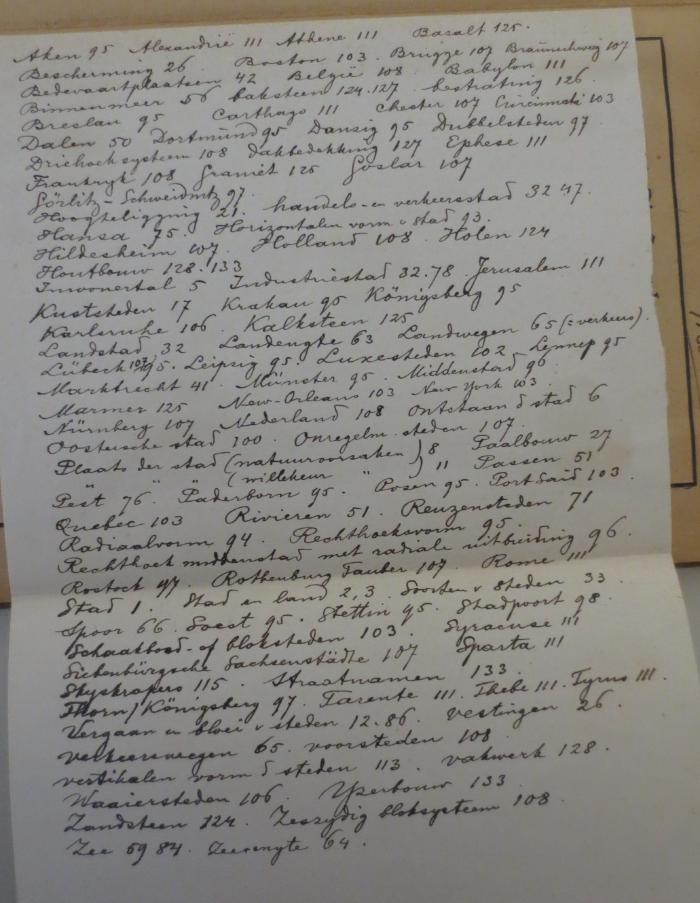 Aken 95 Alexandrië 111 Athene 111 Basalt 125.
Bescherming 26. Boston 103. Brugge 107 Braunschweig 107
Bedevaartplaatsen 42 België 108. Babylon 111
Binnenmeer 56 baksteen 124.127. bestrating 126.
Breslau 95 Carthago 111 Chester 107 Cincinnati 103
Dalen 50 Dortmund 95 Danzig 95 Dubbelsteden 97
Driehoeksysteem 108 dakbedekking 127 Ephese 111
Frankryk 108 graniet 125 Goslar 107
Görlitz-Schweidnitz 97
Hoogteligging 21. handels- en verkeersstad 32 47.
Hansa 75. Horizontalen vorm v stad 93.
Hildesheim 107. Holland 108. Holen 124
Houtbouw 128.133
Inwonertal 5 Industriestad 32.78. Jerusalem 111
Kuststeden 17 Krakau 95 Königsberg 95
Karlsruhe 106. Kalksteen 125
Landstad 32 Landengte 63 Landwegen 65 (= verkeers).
Lübeck 107/95. Leipzig 95. Luxesteden 102 Lennep 95
Marktrecht 41 Münster 95. Middenstad 96
Marmer 125 New-Orleans 103 New York 103
Nürnberg 107 Nederland 108 Ontstaan d stad 6
Oostersche stad 100. Onregelm. steden 107.
Plaats der stad (natuuroorzaken) 8 Paalbouw 27
" " " (willekeur " ) " Passen 51
Pest 76 Paderborn 95. Posen 95. Port Saïd 103.
Quebec 103 Rivieren 51. Reuzensteden 71
Radiaalvorm 94. Rechthoeksvorm 95.
Rechthoek middenstad met radiale uitbreiding 96.
Rostock 97. Rothenburg Tauber 107. Rome 111
Stad 1. Stad en land 2,3. Soorten v steden 33.
Spoor 66. Soest 95. Stettin 95. Stadpoort 98.
Schaakbord- of bloksteden 103. Syracuse 111
Siebenbürgsche Sachsenstädte 107 Sparta 111
Skyskrapers 115. Straatnamen 133.
Thorn/Königsberg 97. Tarente 111. Thebe 111. Tyrus 111.
Vergaan en bloei v steden 12.86. vestingen 26.
verkeerswegen 65. voorsteden 108.
vertikalen vorm d steden 113. vakwerk 128.
Waaiersteden 106. Yzerbouw 133.
Zandsteen 124. Zeszydig bloksysteem 108.
Zee 59 84. Zeeengte 64.